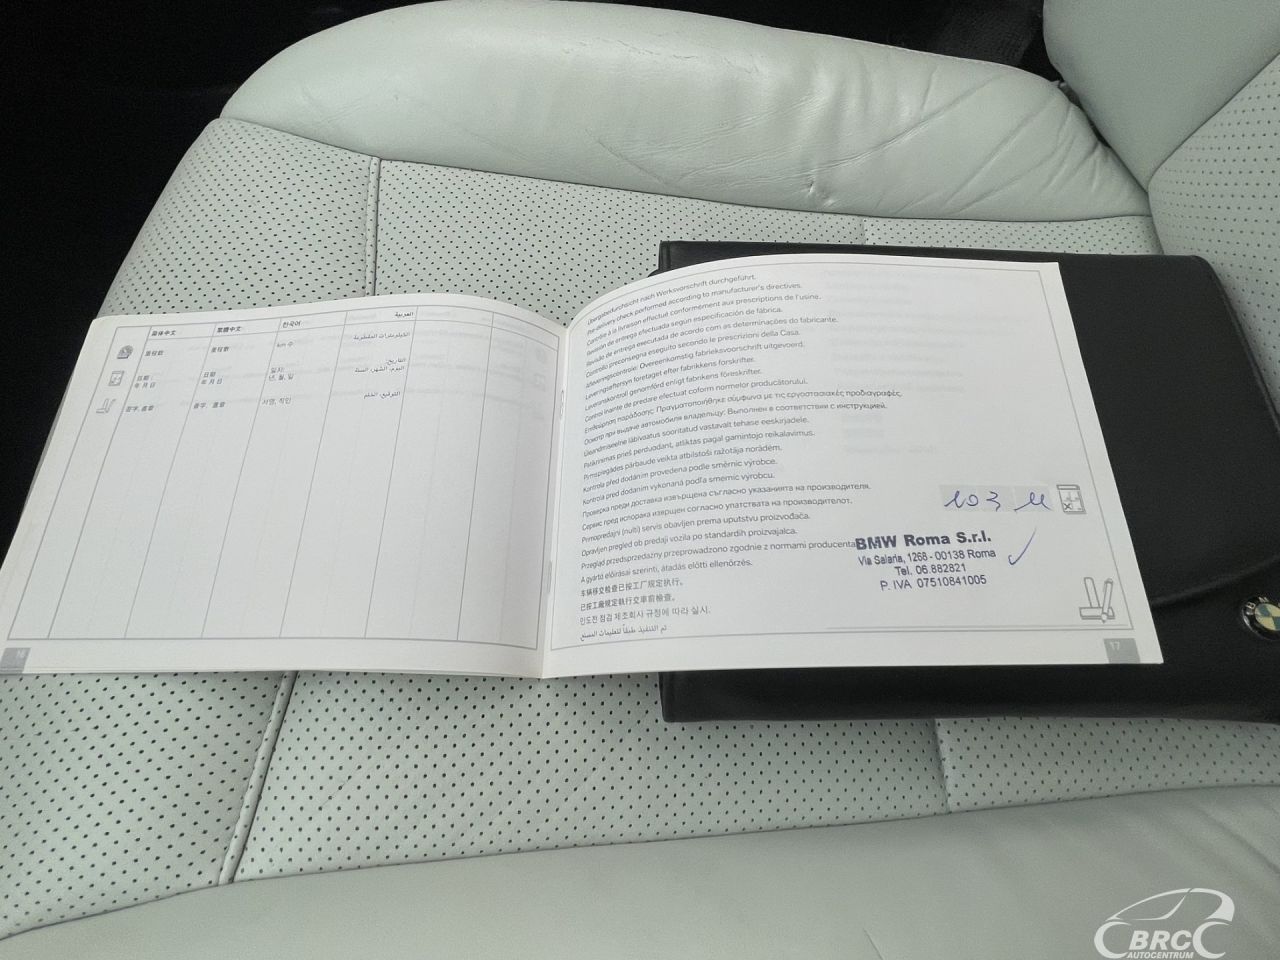 简体中文
繁體中文
한국어
العربية
里程数
里程數
km 수
الكيلومترات المقطوعة
日期:
年 月 日
日期:
年 月 日
일자:
년, 월, 일
التاريخ:
اليوم، الشهر، السنة
签字, 盖章
簽字, 蓋章
서명, 직인
التوقيع، الختم
16
Übergabedurchsicht nach Werksvorschrift durchgeführt.
Pre-delivery check performed according to manufacturer's directives.
Contrôle à la livraison effectué conformément aux prescriptions de l'usine.
Revisión de entrega efectuada según especificación de fábrica.
Revisão de entrega executada de acordo com as determinações do fabricante.
Controllo preconsegna eseguito secondo le prescrizioni della Casa.
Afleveringscontrole: Overeenkomstig fabrieksvoorschrift uitgevoerd.
Leveringseftersyn foretaget efter fabrikkens forskrifter.
Leveranskontroll genomförd enligt fabrikens föreskrifter.
Control înainte de predare efectuat coform normelor producătorului.
Επιθεώρηση παράδοσης: Πραγματοποιήθηκε σύμφωνα με τις εργοστασιακές προδιαγραφές.
Осмотр при выдаче автомобиля владельцу: Выполнен в соответствии с инструкцией.
Üleandmiseelne läbivaatus sooritatud vastavalt tehase eeskirjadele.
Patikrinimas prieš perduodant, atliktas pagal gamintojo reikalavimus.
Pirmspiegādes pārbaude veikta atbilstoši ražotāja norādēm.
Kontrola před dodáním provedena podle směrnic výrobce.
Kontrola pred dodaním vykonaná podľa smerníc výrobcu.
Проверка преди доставка извършена съгласно указанията на производителя.
Сервис пред испорака извршен согласно упатствата на производителот.
Primopredajni (nulti) servis obavljen prema uputstvu proizvođača.
Opravljen pregled ob predaji vozila po standardih proizvajalca.
Przegląd przedsprzedażny przeprowadzono zgodnie z normami producenta
A gyártó előírásai szerinti, átadás előtti ellenőrzés.
车辆移交检查已按工厂规定执行。
已按工廠規定執行交車前檢查。
인도전 점검 제조회사 규정에 따라 실시.
تم التنفيذ طبقاً لتعليمات المصنع
103 11
BMW Roma S.r.l.
Via Salaria, 1268 - 00138 Roma
Tel. 06.882821
P. IVA 07510841005
17
BRC
AUTOCENTRUM